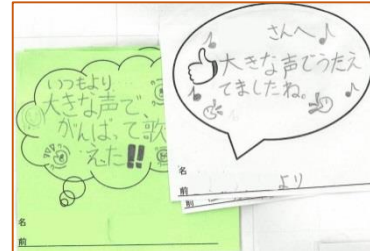 いつもより
大きな声で、
がんばって歌
えた!!
名
前
さんへ
大きな声でうたえ
てましたね。
名
前
より
前